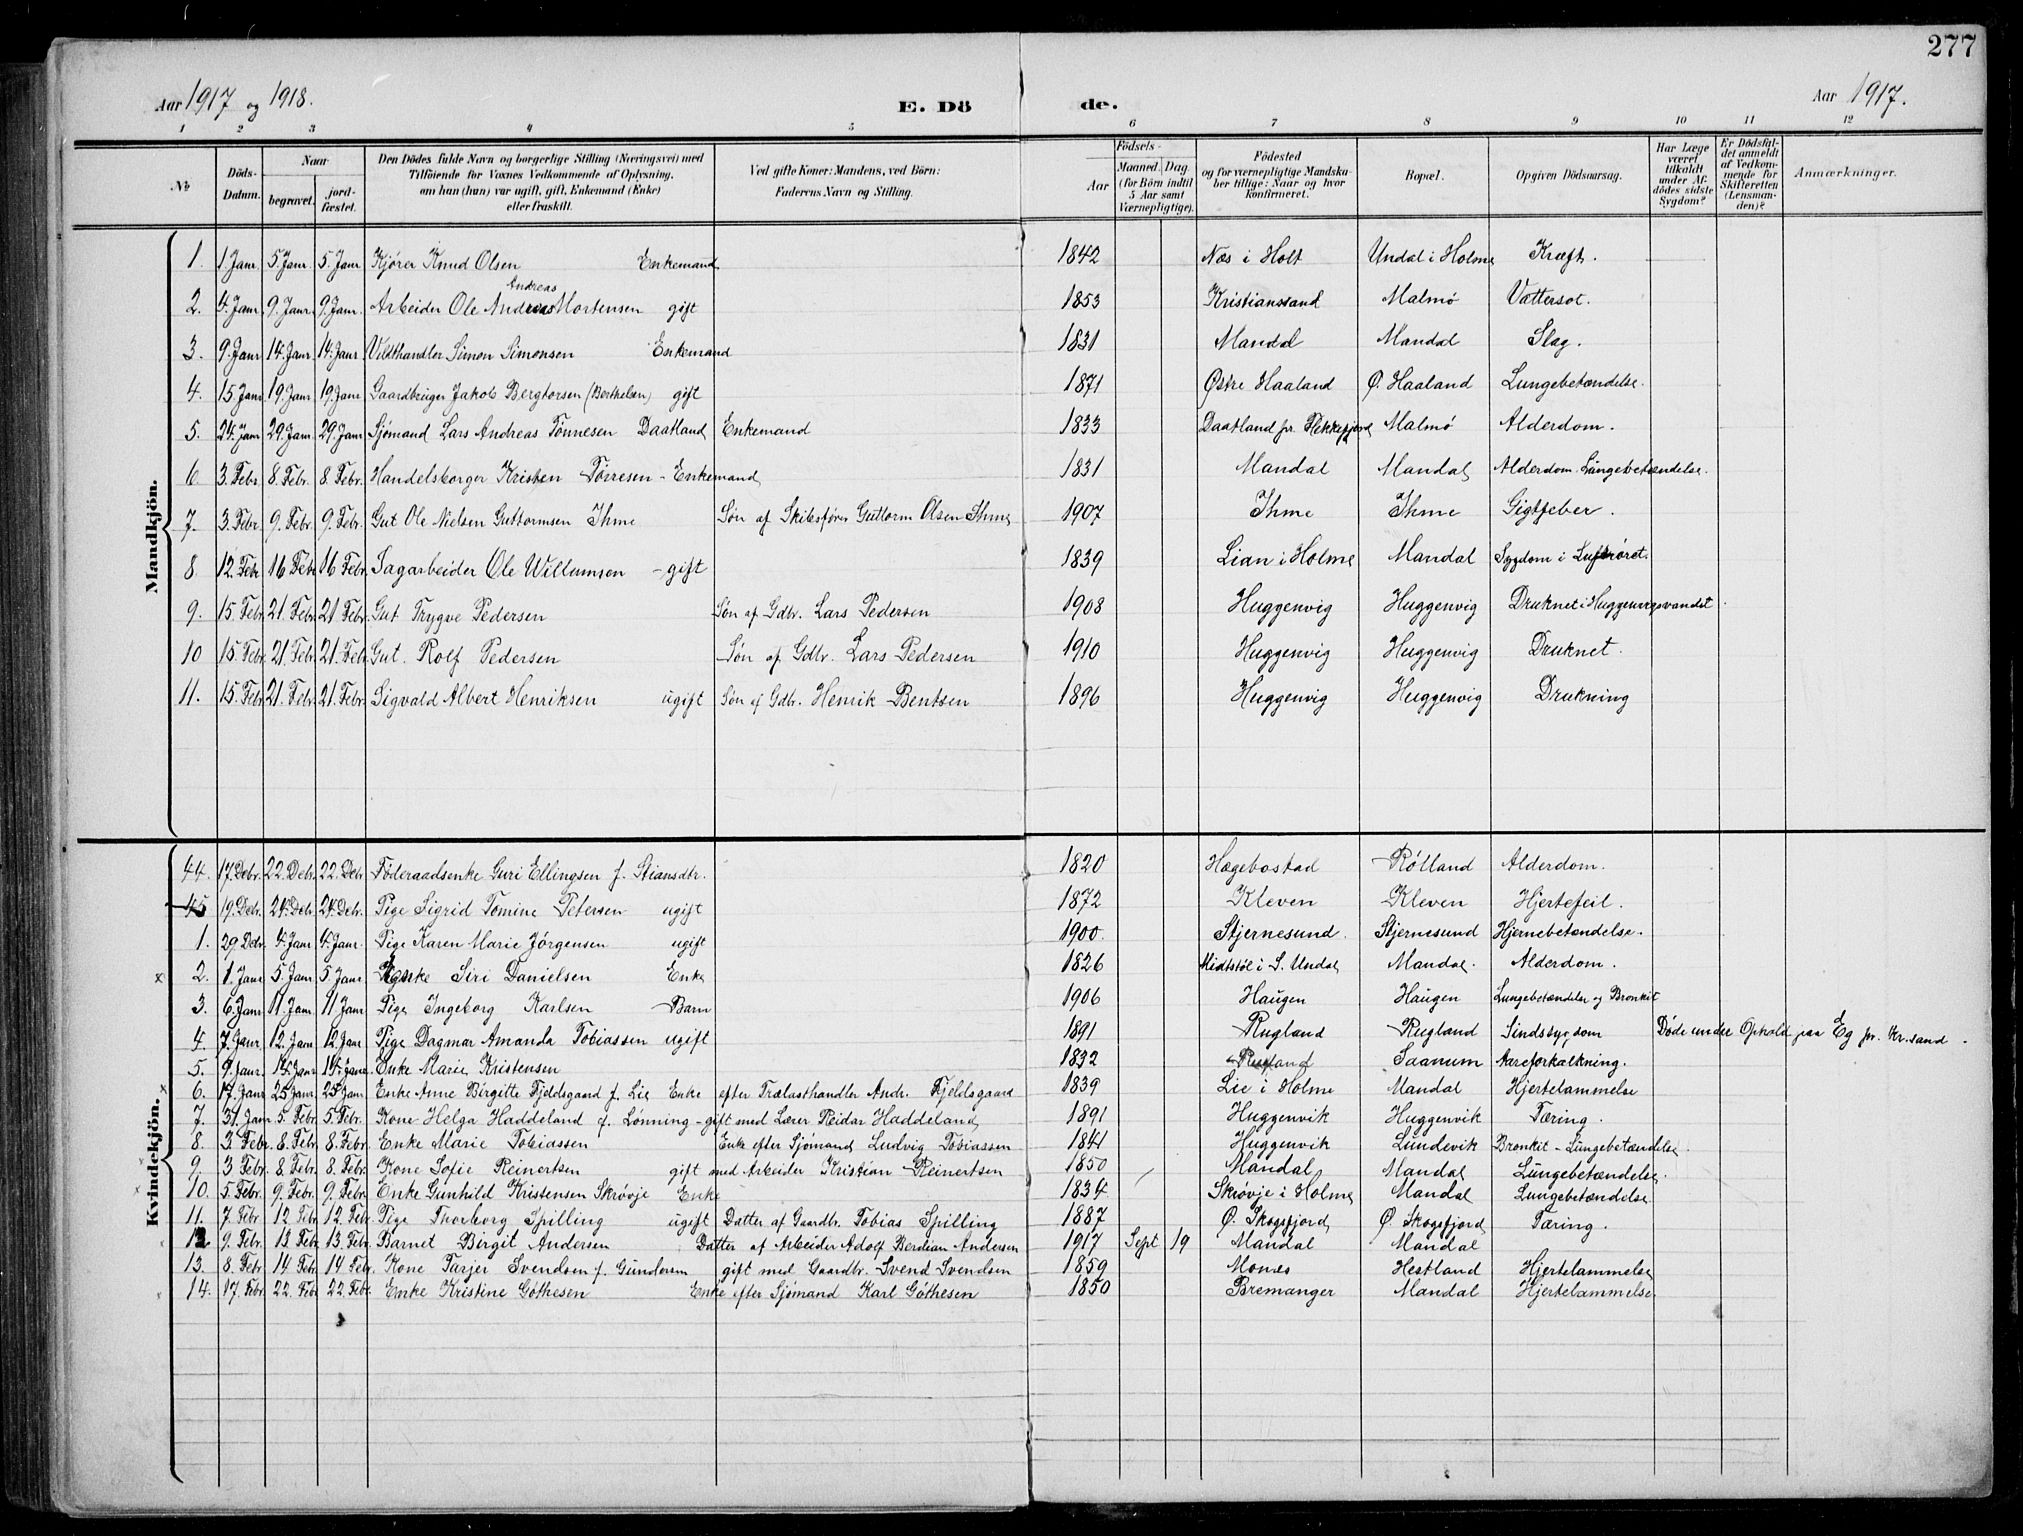 277
Aar 1917 og 1918. E. Dö de. Aar 1917.
1 2 3 4 5 6 7 8 9 10 11 12
№ Döds-Datum. Naar begravet. jord-fæstet. Den Dödes fulde Navn og borgerlige Stilling (Næringsvei) med Tilföiende for Voxnes Vedkommende af Oplysning, om han (hun) var ugift, gift, Enkemand (Enke) eller fraskilt. Ved gifte Koner: Mandens, ved Börn: Faderens Navn og Stilling. Födsels- Aar Maaned. Dag. (for Börn indtil 5 Aar samt Værnepligtige). Födested og for værnepligtige Mandskaber tillige: Naar og hvor konfirmeret. Bopæl. Opgiven Dödsaarsag. Har Læge været tilkaldt under Afdödes sidste Sygdom? Er Dödsfaldet anmeldt af Vedkommende for Skifteretten (Lensmanden)? Anmærkninger.
Mandkjön.
1. 1 Janr 5. Janr 5. Janr Kjører Knud Olsen Enkemand 1842 Næs i Holt Undal i Holme Kræft.
Andreas
2. 4. Janr 9. Janr 9. Janr. Arbeider Ole Andreas Mortensen gift 1853 Kristianssand Malmø Vattersot.
3. 9. Janr 14. Janr 14. Janr Vildthandler Simon Simonsen Enkemand 1831 Mandal Mandal Slag.
4. 15. Janr 19. Janr 19. Janr Gaardbruger Jakob Bergtorsen (Berthelsen) gift 1871 Østre Haaland Ø. Haaland Lungebetændelse.
5. 24. Janr 29. Janr 29. Janr Sjømand Lars Andreas Tønnesen Daatland Enkemand 1833 Daatland pr. Flekkefjord Malmø Alderdom.
6 3. Febr 8. Febr. 8 Febr. Handelsborger Kristen Tørresen - Enkemand 1831 Mandal Mandal Alderdom. Lungebetændelse.
7. 3. Febr. 9. Febr. 9. Febr. Gut Ole Nielsen Guttormsen Ihme Søn af Skibsfører Guttorm Olsen Ihme 1907 Ihme Ihme Gigtfeber.
8 12. Febr 16 Febr 16 Febr. Sagarbeider Ole Willumsen - gift 1839 Lian i Holme Mandal Sygdom i Luftrøret.
9. 15. Febr 21. Febr. 21 Febr. Gut Trygve Pedersen Søn af Gdbr. Lars Pedersen 1908 Huggenvig Huggenvig Druknet i Huggenvigsvandet
10 15. Febr. 21. Febr. 21. Febr. Gut. Rolf Pedersen Søn af Gdbr. Lars Pedersen 1910 Huggenvig Huggenvig Druknet.
11. 15. Febr 21. Febr. 21. Febr. Sigvald Albert Henriksen ugift Søn af Gdbr. Henrik Bentsen 1896 Huggenvig Huggenvig Drukning
Kvindekjön.
44. 17. Debr. 22. Debr. 22. Debr Føderaadsenke Guri Ellingsen f. Stiansdtr. 1820 Hægebostad Røiland Alderdom.
45 19. Debr. 24. Debr. 24. Debr. Pige Sigrid Tomine Petersen ugift 1872 Kleven Kleven Hjertefeil.
1. 29 Debr. 4. Janr 4. Janr. Pige Karen Marie Jørgensen ugift 1900. Stjernesund. Stjernesund Hjernebetændelse.
x 2. 1. Janr 5. Janr 5. Janr Enke Siri Danielsen Enke 1826 Midtstøl i S. Undal Mandal. Alderdom.
3. 6. Janr 11. Janr 11 Janr Pige Ingeborg Karlsen Barn 1906 Haugen Haugen Lungebetændelse og Bronkit
4. 7. Janr 12. Janr 12. Janr Pige Dagmar Amanda Tobiassen ugift 1891 Rugland Rugland Sindssygdom Døde under Ophold paa Eg pr. Kr.sand.
5. 9. Janr. 14. Janr 14. Janr Enke Marie Kristensen 1832 Saanum Aareforkalkning.
x 6. 17. Janr 25. Janr. 25 Janr. Enke Anne Birgitte Fjeldsgaard f. Lie Enke efter Trælasthandler Andr. Fjeldsgaard 1839 Lie i Holme Mandal Hjertelammelse
7. 31. Janr 5. Febr. 5. Febr. Kone Helga Haddeland f. Lønning - gift med Lærer Reidar Haddeland 1891 Huggenvik Huggenvik Tæring.
8. 3. Febr. 8. Febr 8. Febr. Enke Marie Tobiassen Enke efter Sjømand Ludvig Tobiassen 1841 Huggenvik Lundevik Bronkit - Lungebetændelse.
x 9. 3 Febr. 8. Febr. 8. Febr. Kone Sofie Reinertsen gift med Arbeider Kristian Reinertsen 1850 Mandal Mandal Lungebetændelse.
x 10. 5. Febr. 9. Febr. 9 Febr. Enke Gunhild Kristensen Skrøvje Enke 1834. Skrøvje i Holme Mandal Lungebetændelse
11. 7. Febr 12 Febr 12. Febr. Pige Thorborg Spilling ugift Datter af Gaardbr. Tobias Spilling 1887 Ø. Skogsfjord Ø. Skogsfjord Tæring.
12 9. Febr. 13 Febr. 13. Febr. Barnet Birgit Andersen Datter af Arbeider Adolf Berdian Andersen 1917 Sept 19 Mandal Mandal
13. 8. Febr 14 Febr 14 Febr. Kone Tarjer Svendsen f. Gundersen gift med Gaardbr. Svend Svendsen 1859 Mones Hestland Hjertelammelse
14. 17. Febr 22. Febr 22. Febr. Enke Kristine Gøthesen Enke efter Sjømand Karl Gøthesen 1850 Bremanger Mandal Hjertelammelse